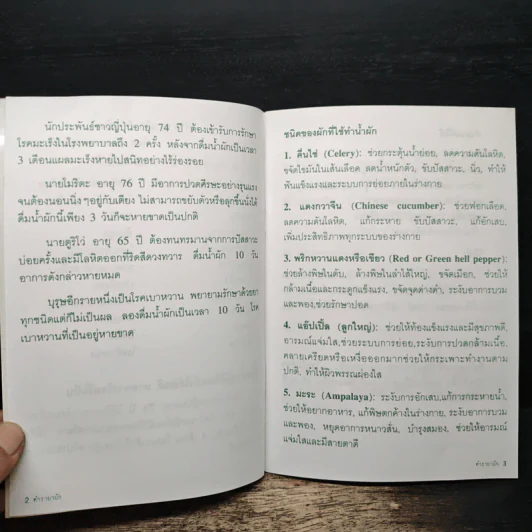 นักประพันธ์ชาวญี่ปุ่นอายุ 74 ปี ต้องเข้ารับการรักษา
โรคมะเร็งในโรงพยาบาลถึง 2 ครั้ง หลังจากดื่มน้ำผักเป็นเวลา
3 เดือนแผลมะเร็งหายไปสนิทอย่างไร้ร่องรอย
นายโมริตะ อายุ 76 ปี มีอาการปวดศีรษะอย่างรุนแรง
จนต้องนอนนิ่งๆอยู่กับเตียง ไม่สามารถขยับตัวหรือลุกขึ้นนั่งได้
ดื่มน้ำผักนี้เพียง 3 วันก็จะหายขาดเป็นปกติ
นายคูริโว่ อายุ 65 ปี ต้องทนทรมานจากการปัสสาวะ
บ่อยครั้งและมีโลหิตออกที่ริดสีดวงทวาร ดื่มน้ำผัก 10 วัน
อาการดังกล่าวหายหมด
บุรุษอีกรายหนึ่งเป็นโรคเบาหวาน พยายามรักษาด้วยยา
ทุกชนิดแต่ก็ไม่เป็นผล ลองดื่มน้ำผักเป็นเวลา 10 วัน โรค
เบาหวานที่เป็นอยู่หายขาด
2 ตำรายาผัก
ชนิดของผักที่ใช้ทำน้ำผัก
1. คื่นไช่ (Celery): ช่วยกระตุ้นน้ำย่อย, ลดความดันโลหิต,
ขจัดไขมันในเส้นเลือด ลดน้ำหนักตัว, ขับปัสสาวะ, นิ่ว, ทำให้
ฟันแข็งแรงและระบบการย่อยภายในร่างกาย
2. แตงกวาจีน (Chinese cucumber): ช่วยฟอกเลือด,
ลดความดันโลหิต, แก้กระหาย ขับปัสสาวะ, แก้อักเสบ,
เพิ่มประสิทธิภาพทุกระบบของร่างกาย
3. พริกหวานแดงหรือเขียว (Red or Green hell pepper):
ช่วยล้างพิษในตับ, ล้างพิษในลำไส้ใหญ่, ขจัดเมือก, ช่วยให้
กล้ามเนื้อและกระดูกแข็งแรง, ขจัดจุดด่างดำ, ระงับอาการบวม
และพอง,ช่วยรักษาปอด
4. แอ๊ปเปิ้ล (ลูกใหญ่): ช่วยให้ท้องแข็งแรงและมีสุขภาพดี,
อารมณ์แจ่มใส,ช่วยระบบการย่อย,ระงับการปวดกล้ามเนื้อ,
คลายเครียดหรือเหงื่อออกมากช่วยให้กระเพาะทำงานตาม
ปกติ, ทำให้ผิวพรรณผ่องใส
5. มะระ (Ampalaya): ระงับการอักเสบ,แก้การกระหายน้ำ,
ช่วยให้อยากอาหาร, แก้พิษตกค้างในร่างกาย, ระงับอาการบวม
และพอง, หยุดอาการหนาวสั่น, บำรุงสมอง, ช่วยให้อารมณ์
แจ่มใสและมีสายตาดี
ตำรายาผัก 3